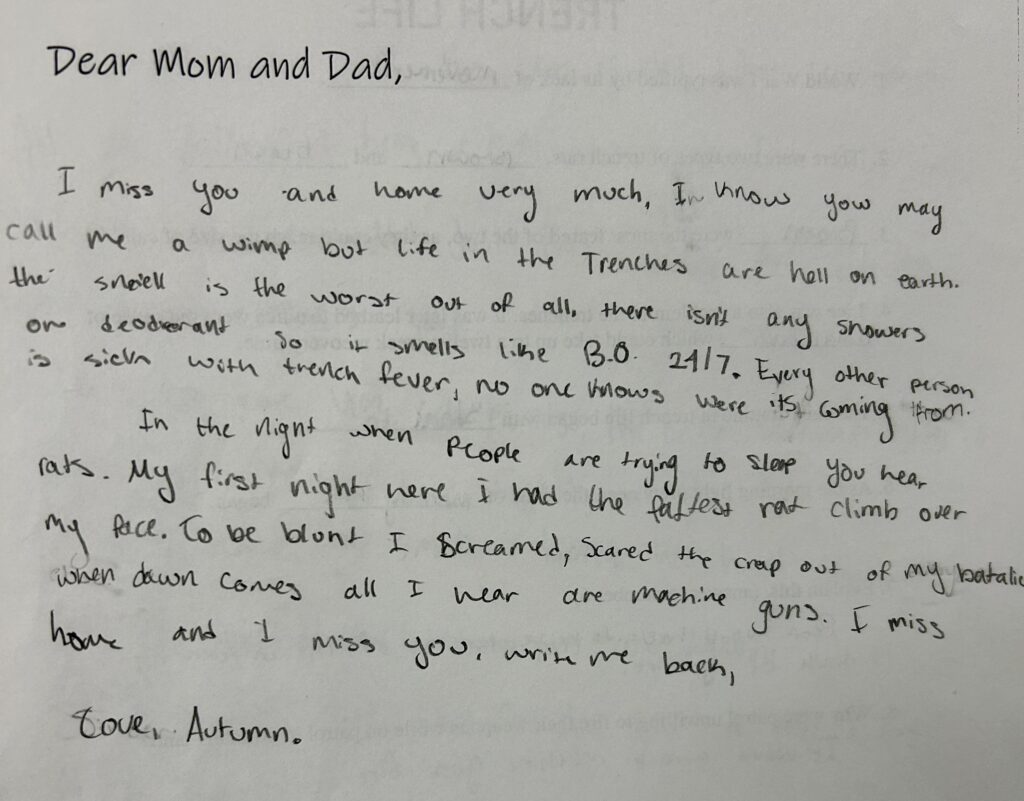 Dear Mom and Dad,
I miss you and home very much, I know you may
call me a wimp but life in the Trenches are hell on earth.
the smell is the worst out of all, there isn't any showers
or deoderant so it smells like B.O. 24/7. Every other person
is sick with trench fever, no one knows were its coming from.
In the night when People are trying to sleep you hear
rats. My first night here i had the fattest rat climb over
my face. To be blunt I screamed, scared the crap out of my batalie
when dawn comes all I hear are machine guns. I miss
home and I miss you, write me back,
Love, Autumn.
TRENCH LIFE